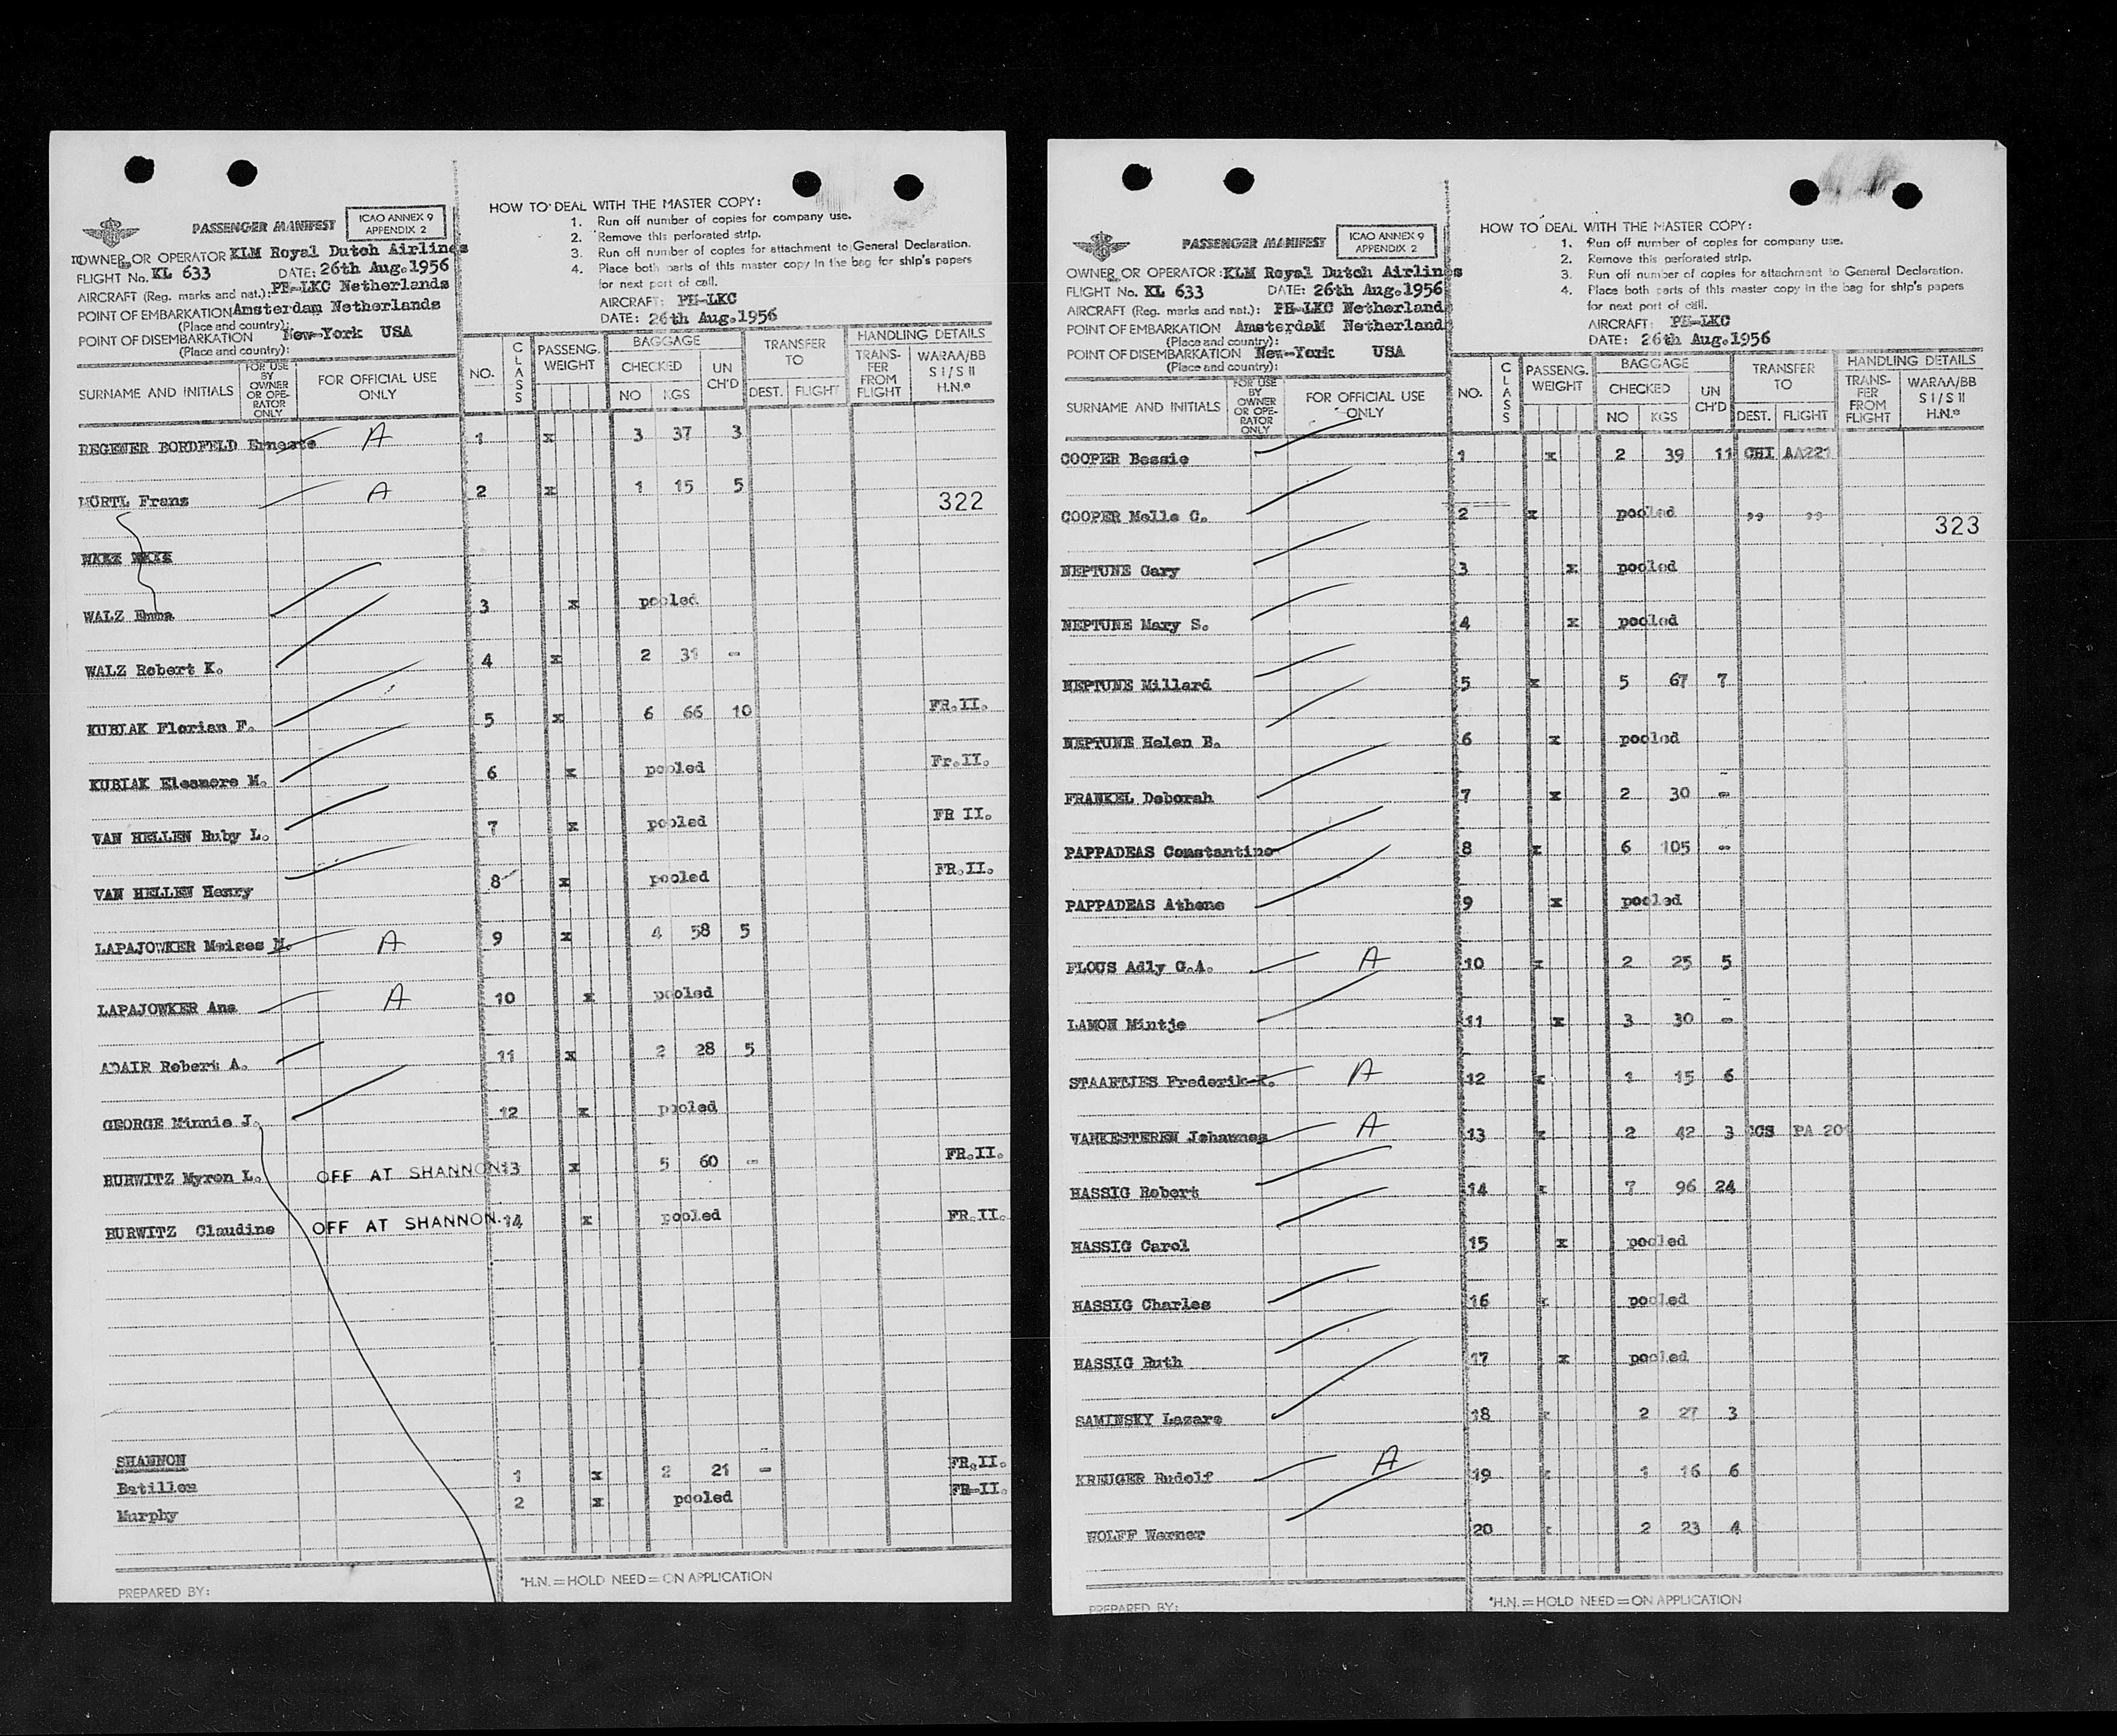 PASSENGER MANIFEST
ICAO ANNEX 9
APPENDIX 2
OWNER OR OPERATOR KLM Royal Dutch Airlines
FLIGHT No. KL 633 DATE: 26th Aug.1956
AIRCRAFT (Reg. marks and nat.): PH-LKC Netherlands
POINT OF EMBARKATION Amsterdam Netherlands
(Place and country):
POINT OF DISEMBARKATION New-York USA
(Place and country):
HOW TO DEAL WITH THE MASTER COPY:
1. Run off number of copies for company use.
2. Remove this perforated strip.
3. Run off number of copies for attachment to General Declaration.
4. Place both parts of this master copy in the bag for ship's papers
for next port of call.
AIRCRAFT: PH-LKC
DATE: 26th Aug.1956
SURNAME AND INITIALS
FOR USE BY OWNER OR OPE-RATOR ONLY
FOR OFFICIAL USE ONLY
NO. CLASS PASSENG. WEIGHT BAGGAGE CHECKED NO KGS UN CH'D TRANSFER TO DEST. FLIGHT HANDLING DETAILS TRANS-FER FROM FLIGHT WARAA/BB S I/S II H.N.*
REGENER BORDFELD Ernesto A 1 x 3 37 3
HÖRTL Franz A 2 x 1 15 5
322
WALZ Emma 3 x pooled
WALZ Robert K. 4 x 2 31 -
KUBIAK Florian F. 5 x 6 66 10 FR.II.
KUBIAK Eleanore M. 6 x pooled Fr.II.
VAN HELLEN Ruby L. 7 x pooled FR II.
VAN HELLEN Henry 8 x pooled FR.II.
LAPAJOWKER Moises N. A 9 x 4 58 5
LAPAJOWKER Ana A 10 x pooled
ADAIR Robert A. 11 x 2 28 5
GEORGE Minnie J. 12 x pooled
HURWITZ Myron L. OFF AT SHANNON 13 x 5 60 - FR.II.
HURWITZ Claudine OFF AT SHANNON. 14 x pooled FR.II.
SHANNON
1 x 2 21 - FR.II.
Batilles
2 x pooled FR-II.
Murphy
PREPARED BY:
*H.N. = HOLD NEED = ON APPLICATION
PASSENGER MANIFEST
ICAO ANNEX 9
APPENDIX 2
OWNER OR OPERATOR: KLM Royal Dutch Airlines
FLIGHT No. KL 633 DATE: 26th Aug.1956
AIRCRAFT (Reg. marks and nat.): PH-LKC Netherland
POINT OF EMBARKATION AmsterdaM Netherland
(Place and country):
POINT OF DISEMBARKATION New-York USA
(Place and country):
HOW TO DEAL WITH THE MASTER COPY:
1. Run off number of copies for company use.
2. Remove this perforated strip.
3. Run off number of copies for attachment to General Declaration.
4. Place both parts of this master copy in the bag for ship's papers
for next port of call.
AIRCRAFT: PH-LKC
DATE: 26th Aug.1956
SURNAME AND INITIALS
FOR USE BY OWNER OR OPE-RATOR ONLY
FOR OFFICIAL USE ONLY
NO. CLASS PASSENG. WEIGHT BAGGAGE CHECKED NO KGS UN CH'D TRANSFER TO DEST. FLIGHT HANDLING DETAILS TRANS-FER FROM FLIGHT WARAA/BB S I/S II H.N.*
COOPER Bessie 1 x 2 39 11 CHI AA221
COOPER Melle C. 2 x pooled ,, ,,
323
NEPTUNE Gary 3 x pooled
NEPTUNE Mary S. 4 x pooled
NEPTUNE Millard 5 x 5 67 7
NEPTUNE Helen B. 6 x pooled
FRANKEL Deborah 7 x 2 30 -
PAPPADEAS Constantino 8 x 6 105 -
PAPPADEAS Athene 9 x pooled
FLOUS Adly G.A. A 10 x 2 25 5
LAMON Mintje 11 x 3 30 -
STAARTJES Frederik K. A 12 x 1 15 6
VANKESTEREN Johannes A 13 x 2 42 3 CCS PA 201
HASSIG Robert 14 x 7 96 24
HASSIG Carol 15 x pooled
HASSIG Charles 16 x pooled
HASSIG Ruth 17 x pooled
SAMINSKY Lazare 18 x 2 27 3
KREUGER Rudolf A 19 x 1 16 6
WOLFF Werner 20 x 2 23 4
PREPARED BY:
*H.N. = HOLD NEED = ON APPLICATION